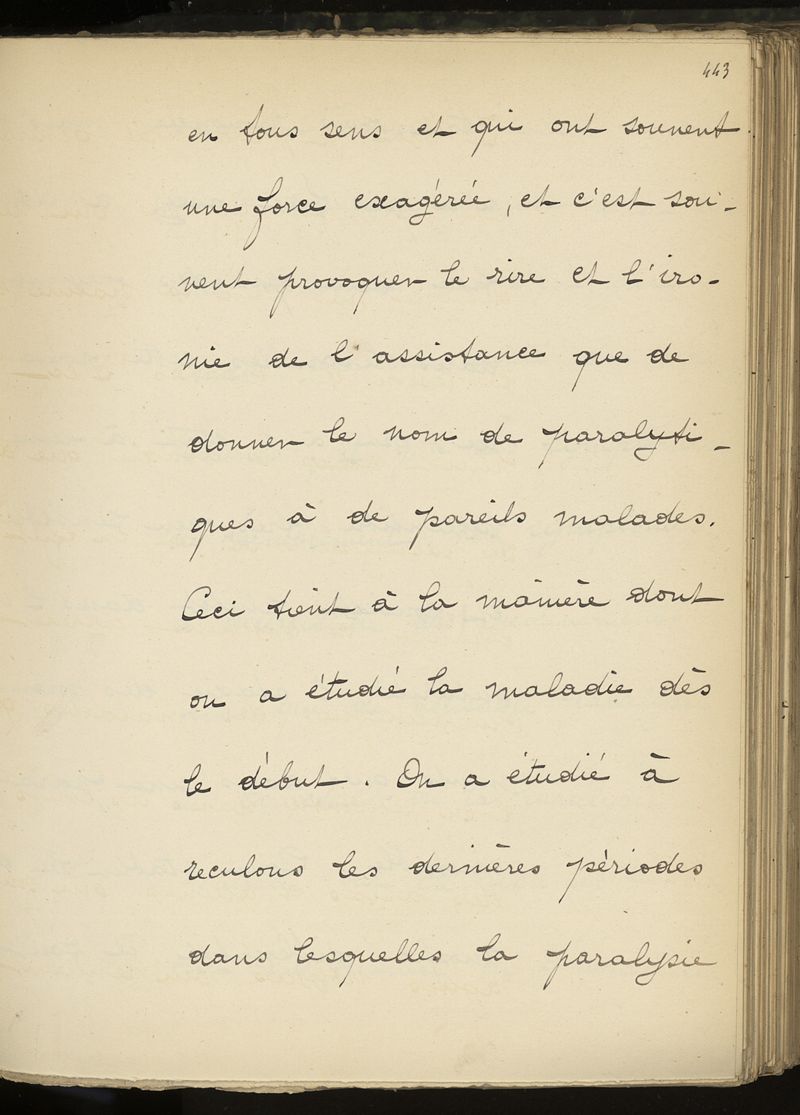 443
en tous sens et qui ont souvent
une force exagérée, et c'est sou-
vent provoquer le rire et l'iro-
nie de l'assistance que de
donner le nom de paralyti-
ques à de pareils malades.
Ceci tient à la manière dont
on a étudié la maladie dès
le début. On a étudié à
reculons les dernières périodes
dans lesquelles la paralysie